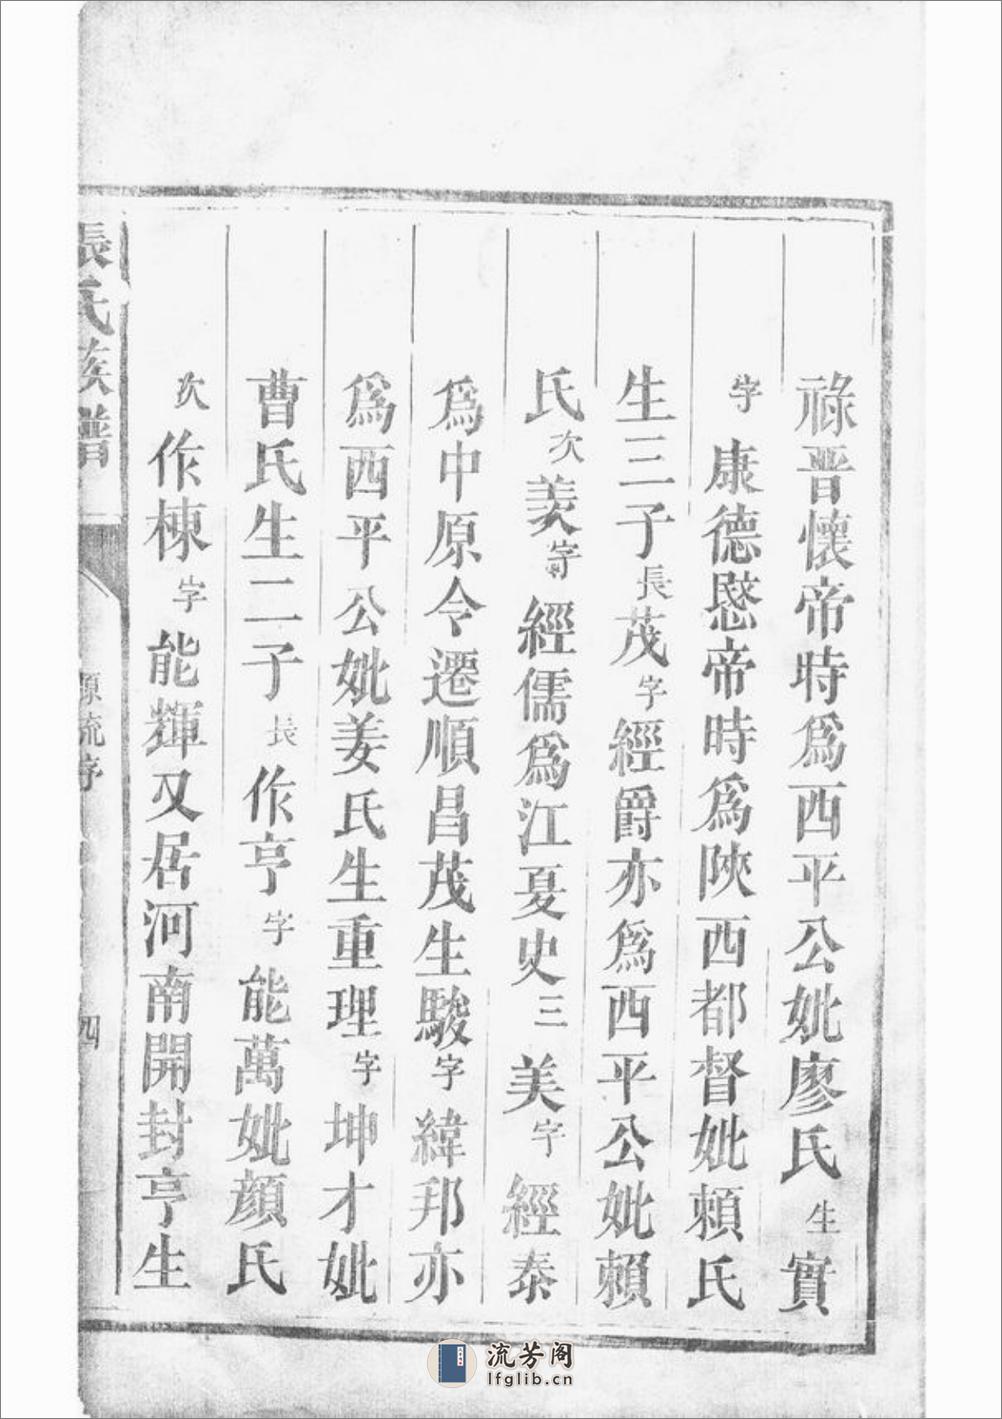 祿晋懷帝時爲西平公妣廖氏生實
字康德愍帝時爲陝西都督妣賴氏
生三子長茂字經爵亦爲西平公妣賴
氏次羙字經儒爲江夏史三美字經泰
爲中原令遷順昌茂生駿字緯邦亦
爲西平公妣姜氏生重理字坤才妣
曹氏生二子長作亨字能萬妣顔氏
次作棟字能輝又居河南開封亨生
張氏族譜
源流序
四
流芳阁
lfglib.cn